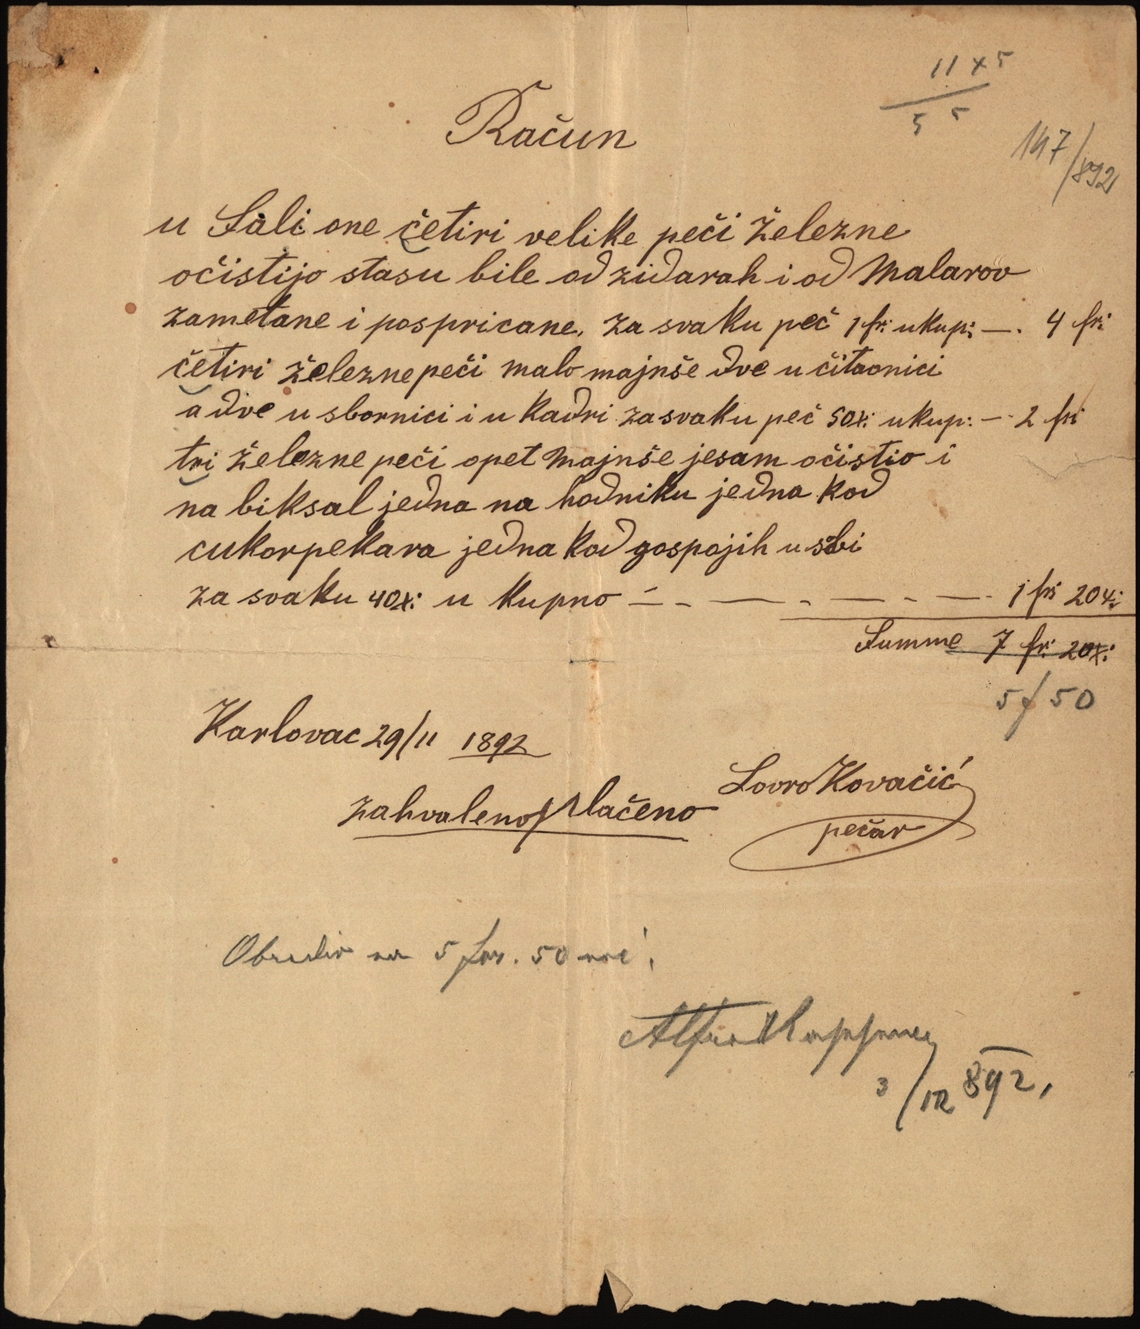 11 x 5
5 5
Račun
147/892
u Sali one četiri velike peći železne
očistijo stasu bile od zidarah i od Malarov
zametane i pospricane, za svaku peč 1 fr: ukup: —. 4 fr:
četiri železne peći malo majnše dve u čitaonici
a dve u sbornici i u Kadri za svaku peč 50x: ukup: — 2 fr:
tri železne peći opet majnše jesam očistio i
na biksal jedna na hodniku jedna kod
cukorpekara jedna kod gospojih u sobi
za svaku 40x: u kupno — - — . — - — . 1 fr: 20x:
Summe 7 fr: 20x:
5 f 50
Karlovac 29/11 1892
Lovro Kovačić
zahvaleno plačeno
pečar
5 for. 50 nvč.
Alfred
3/12 892.